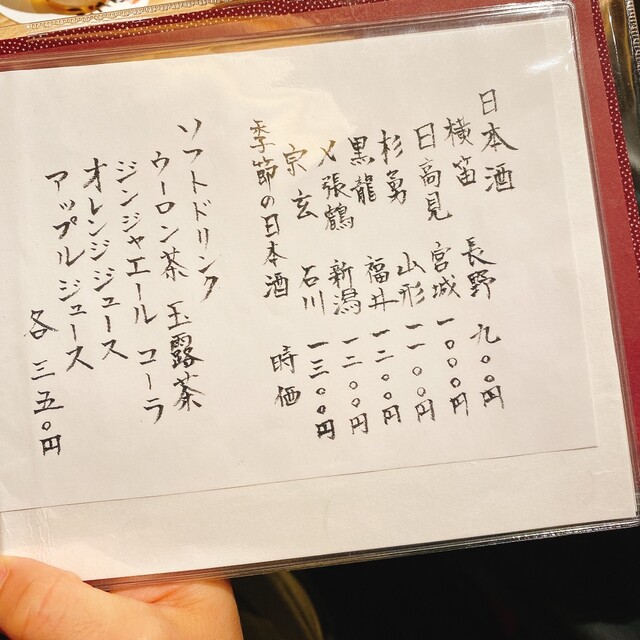 日本酒
横笛 長野 九〇〇円
日高見 宮城 一〇〇〇円
杉勇 山形 一一〇〇円
黒龍 福井 一二〇〇円
〆張鶴 新潟 一二〇〇円
宗玄 石川 一三〇〇円
季節の日本酒 時価
ソフトドリンク
ウーロン茶 玉露茶
ジンジャエール コーラ
オレンジジュース
アップルジュース
各三五〇円